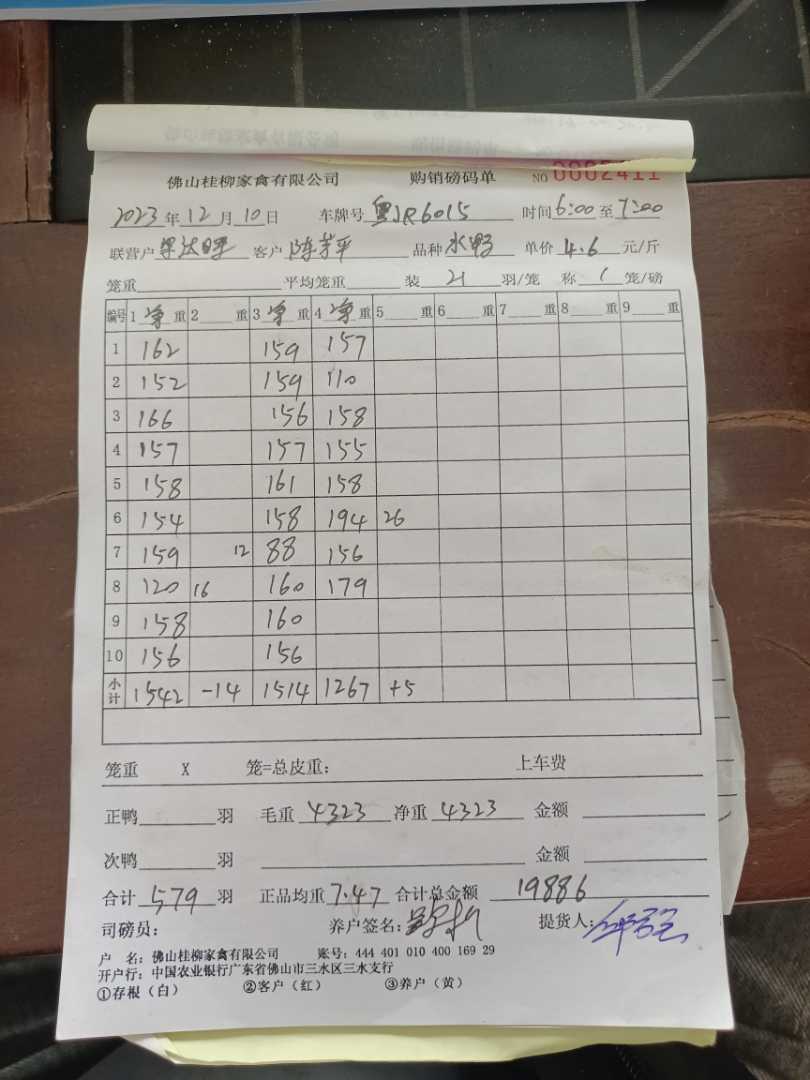 佛山桂柳家禽有限公司 购销磅码单 NO 0002411
2023年12月10日 车牌号 粤JR6015 时间6:00至7:00
联营户 客户 陈芳平 品种 水鸭 单价 4.6 元/斤
笼重 平均笼重 装 21 羽/笼 称 1 笼/磅
编号 1 净 重 2 重 3 净 重 4 净 重 5 重 6 重 7 重 8 重 9 重
1 162 159 157
2 152 159 110
3 166 156 158
4 157 157 155
5 158 161 158
6 154 158 194 26
7 159 12 88 156
8 120 16 160 179
9 158 160
10 156 156
小计 1542 -14 1514 1267 +5
笼重 X 笼=总皮重: 上车费
正鸭 羽 毛重 4323 净重 4323 金额
次鸭 羽 金额
合计 579 羽 正品均重 7.47 合计总金额 19886
司磅员: 养户签名: 提货人:
户 名: 佛山桂柳家禽有限公司 账号: 444 401 010 400 169 29
开户行: 中国农业银行广东省佛山市三水区三水支行
①存根(白) ②客户(红) ③养户(黄)